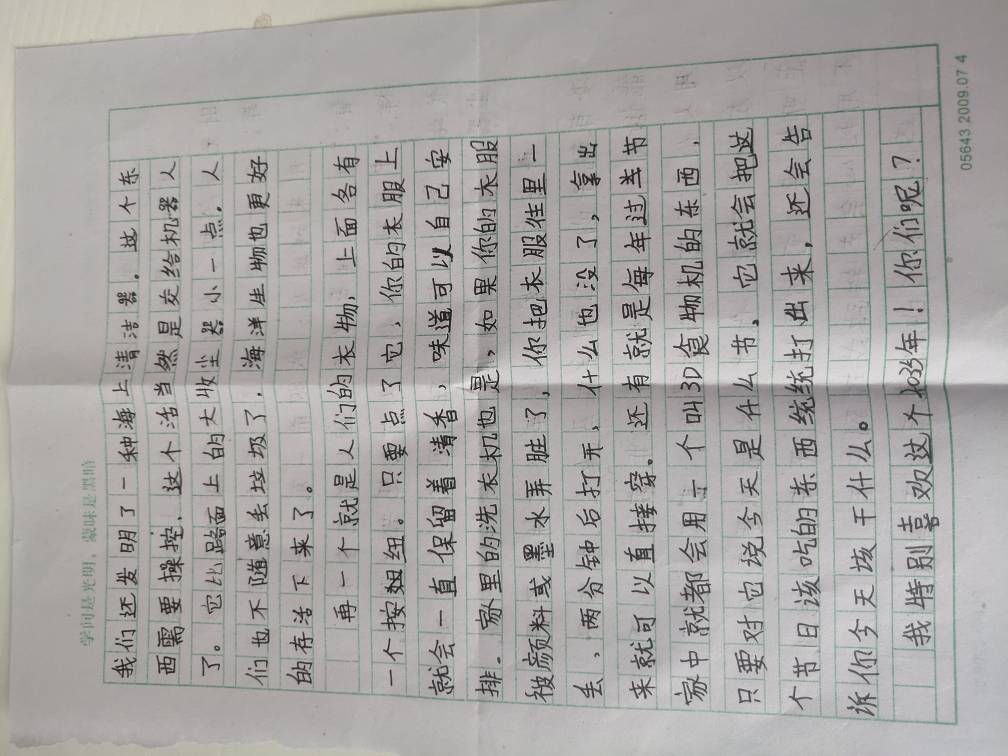 学问是光明，蒙昧是黑暗
我们还发明了一种海上清洁器。这个东
西需要操控，这个活当然是交给机器人
了。它比路面上的大收尘器小一点。人
们也不随意丢垃圾了，海洋生物也更好
的存活下来了。
再一个就是人们的衣物，上面各有
一个按妞纽。只要点了它，你的衣服上
就会一直保留着清香，味道可以自己安
排。家里的洗衣机也是，如果你的衣服
被颜料或墨水弄脏了，你把衣服往里一
丢，两分钟后打开，什么也没了，拿出
来就可以直接穿。还有就是每年过年节
家中就都会用一个叫3D食物机的东西，
只要对它说今天是什么节，它就会把这
个节日该吃的东西统统打出来，还会告
诉你今天该干什么。
我特别喜欢这个2035年！你们呢？
05643.2009.07 4